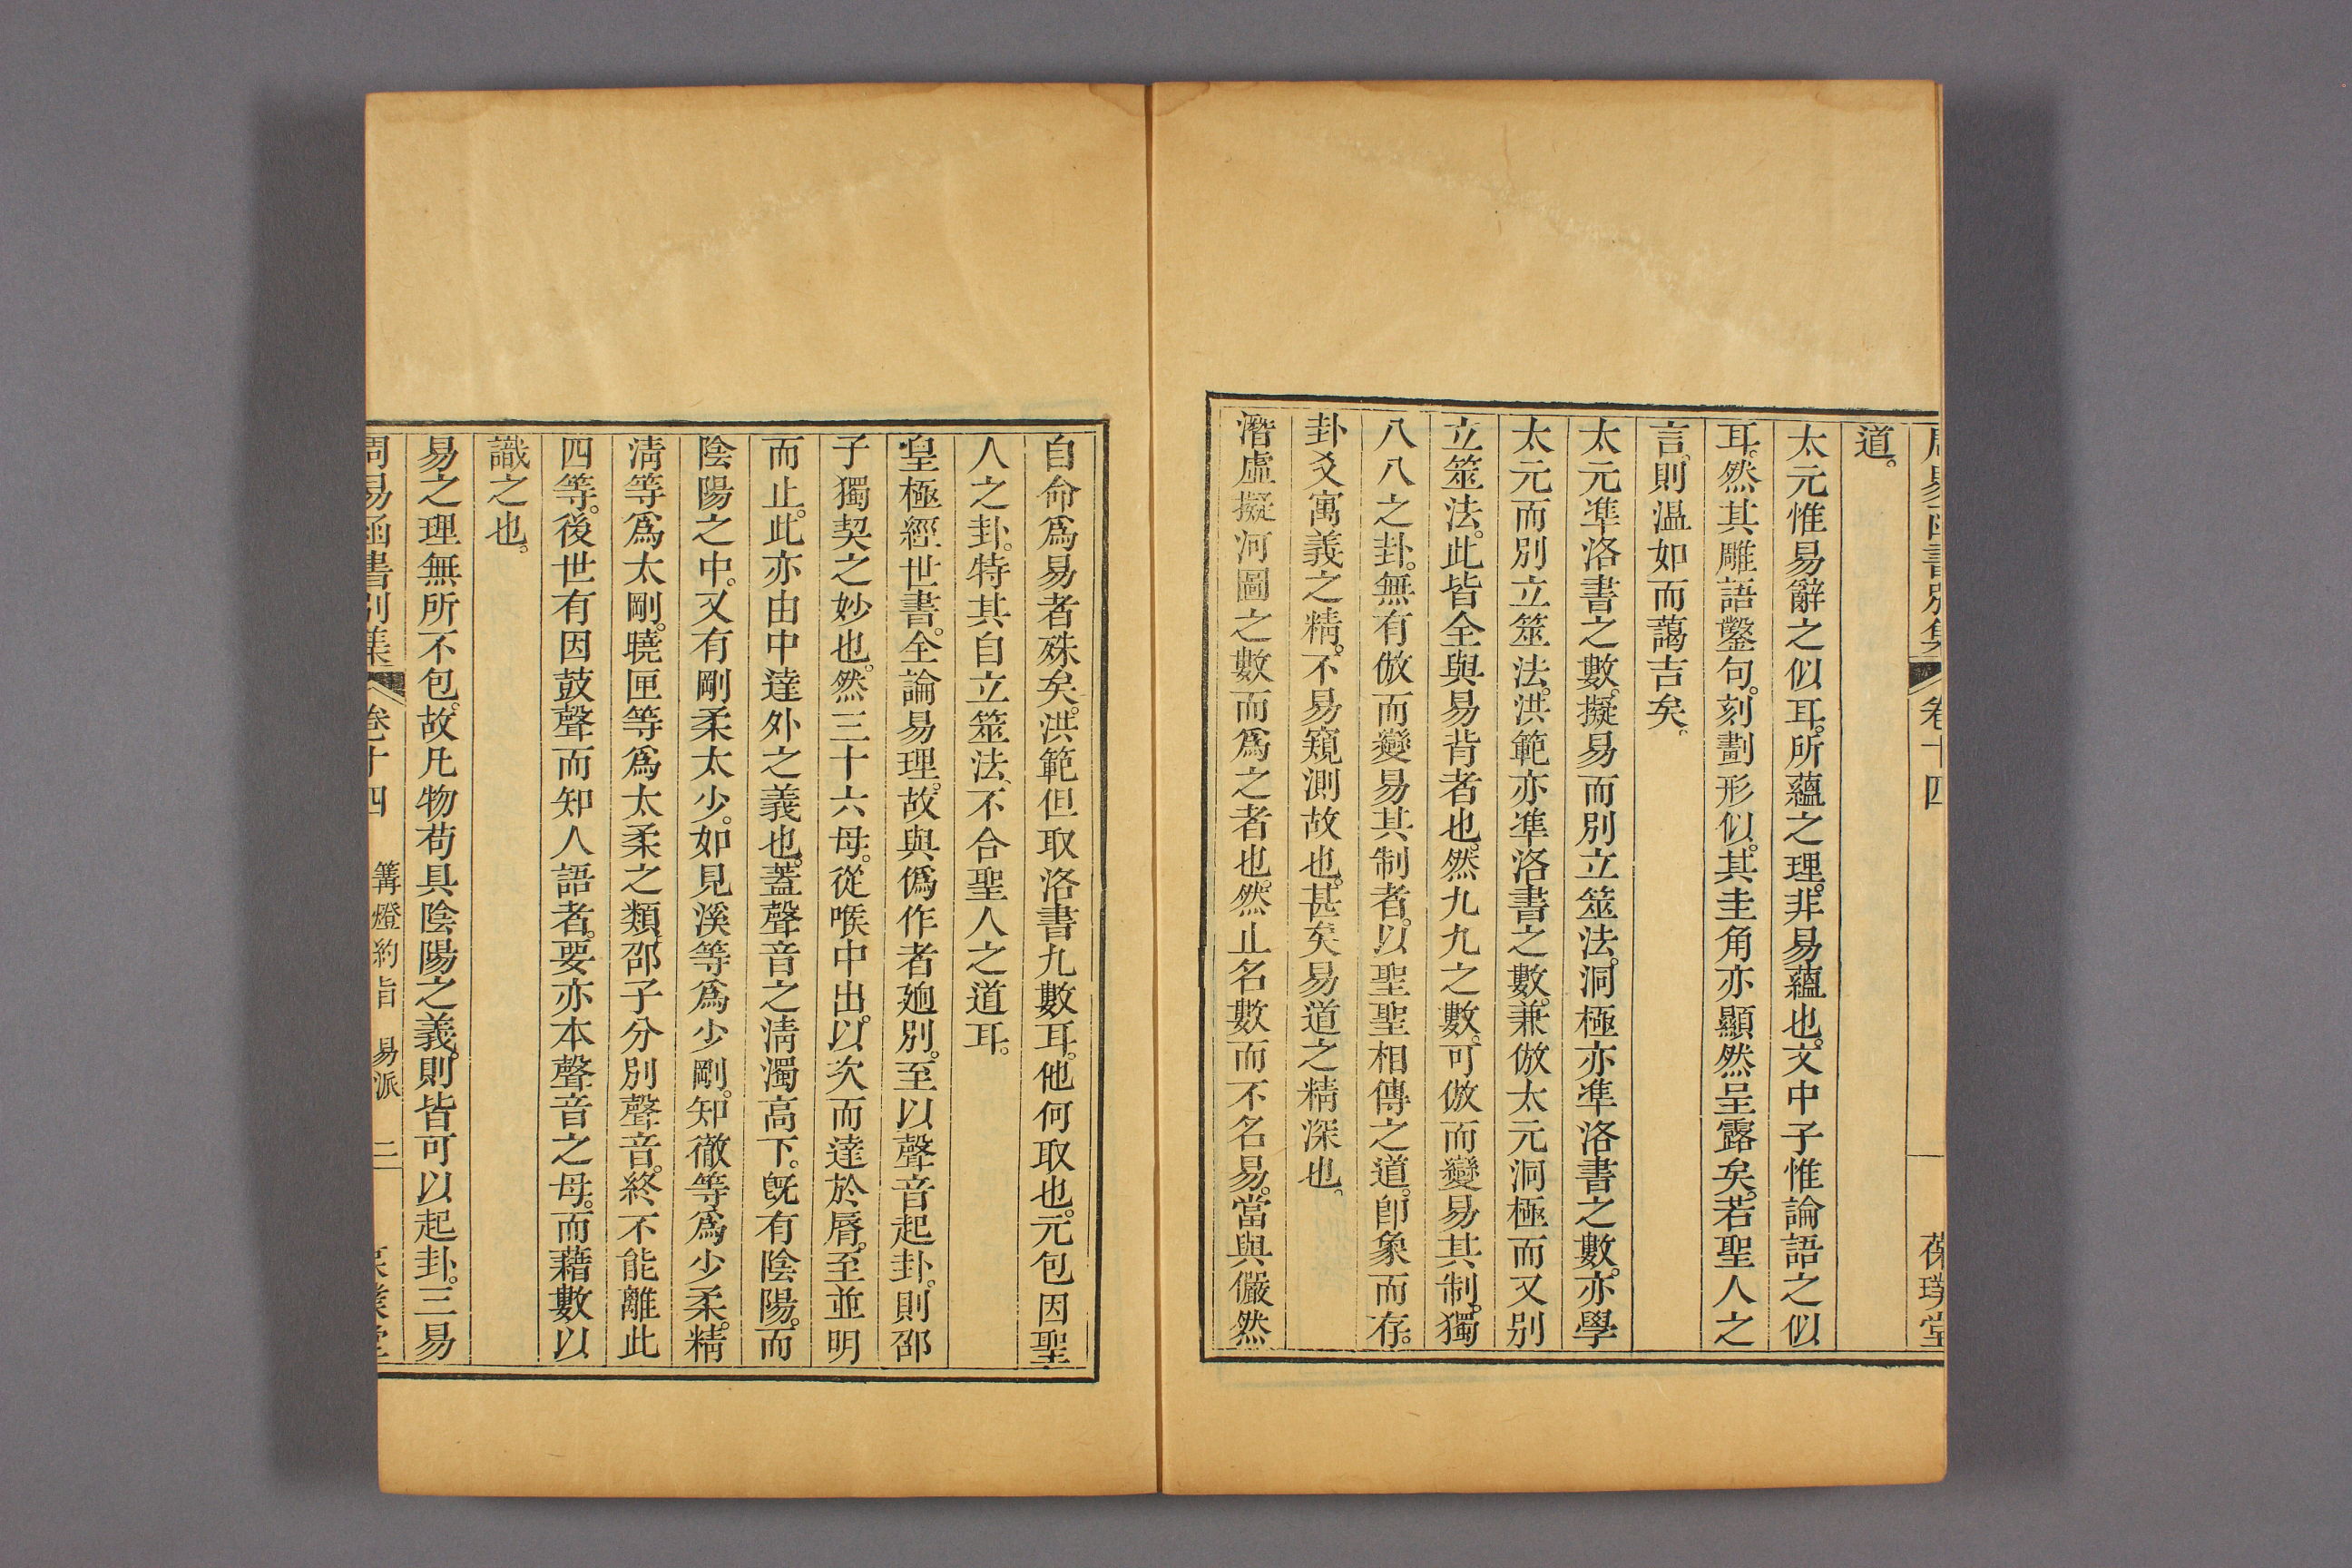 周易函書別集 卷十四 葆璞堂
道。
太元惟易辭之似耳。所蘊之理。非易蘊也。文中子惟論語之似
耳。然其雕語鑿句。刻劃形似。其圭角亦顯然呈露矣。若聖人之
言。則温如而藹吉矣。
太元準洛書之數。擬易而別立筮法。洞極亦準洛書之數。亦學
太元而別立筮法。洪範亦準洛書之數。兼倣太元洞極而又別
立筮法。此皆全與易背者也。然九九之數。可倣而變易其制。獨
八八之卦。無有倣而變易其制者。以聖聖相傳之道。卽象而存。
卦爻寓義之精。不易窺測故也。甚矣易道之精深也。
潛虛擬河圖之數而爲之者也。然止名數而不名易。當與儼然
自命爲易者殊矣。洪範但取洛書九數耳。他何取也。元包因聖
人之卦。特其自立筮法。不合聖人之道耳。
皇極經世書。全論易理。故與僞作者逈別。至以聲音起卦。則邵
子獨契之妙也。然三十六母。從喉中出。以次而達於脣。至並明
而止。此亦由中達外之義也。蓋聲音之淸濁高下。旣有陰陽。而
陰陽之中。又有剛柔太少。如見溪等爲少剛。知徹等爲少柔。精
淸等爲太剛。曉匣等爲太柔之類。邵子分別聲音。終不能離此
四等。後世有因鼓聲而知人語者。要亦本聲音之母。而藉數以
識之也。
易之理無所不包。故凡物苟具陰陽之義。則皆可以起卦。三易
周易函書別集 卷十四 篝燈約旨 易派 二